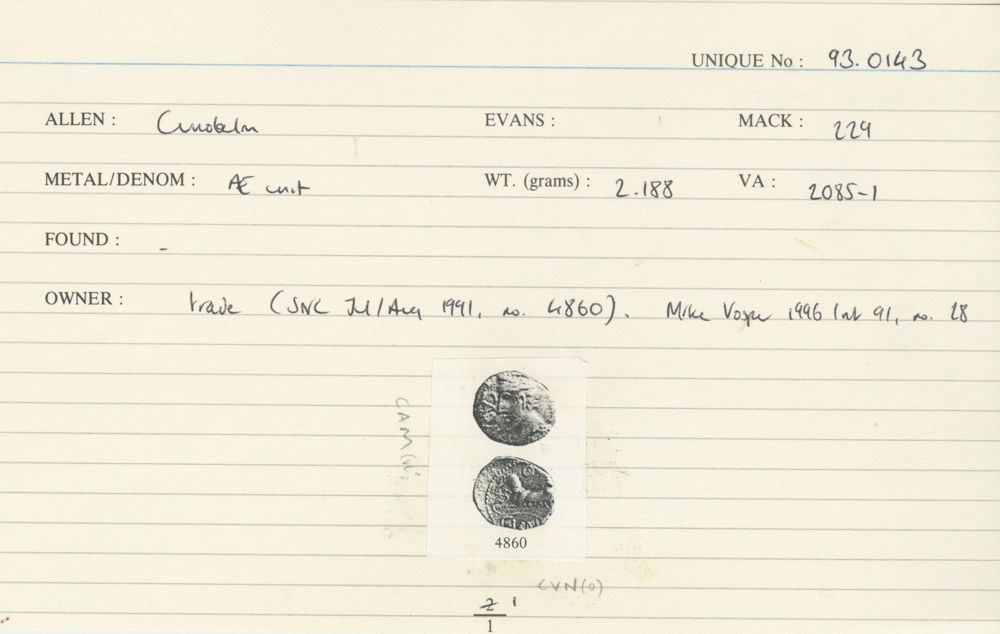 UNIQUE No : 93.0143
ALLEN : Cunobelin EVANS : MACK : 229
METAL/DENOM : Æ unit WT. (grams) : 2.188 VA : 2085-1
FOUND : -
OWNER : trade (SNC Jul/Aug 1991, no. 4860). Mike 1996 91, no. 28
CAM
4860
CVN(O)
2 1
1